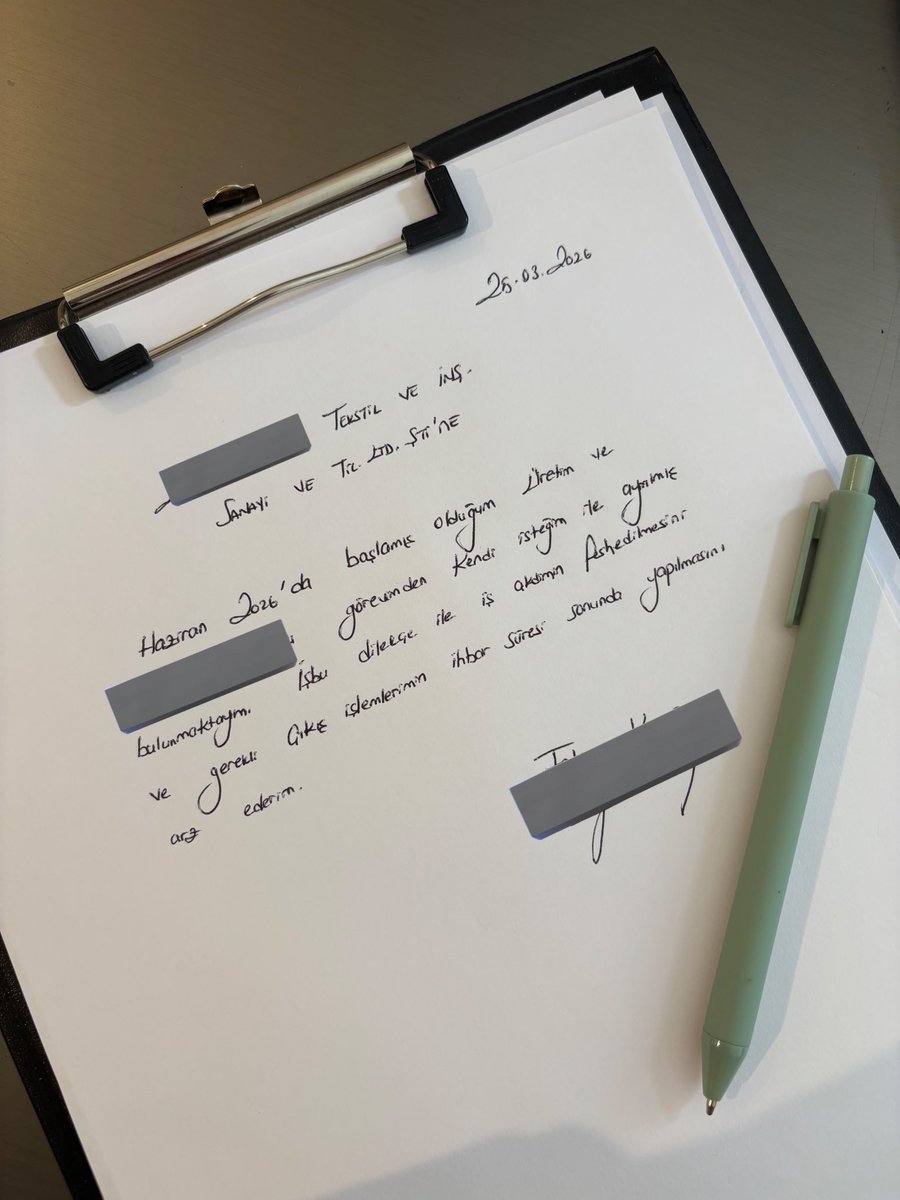 25.03.2026
TEKSTİL VE İNŞ.
SANAYİ VE TİC. LTD. ŞTİ'NE
Haziran 2026'da başlamış olduğum Üretim ve
görevimden kendi isteğim ile ayrılmış
bulunmaktayım. İşbu dilekçe ile iş akdimin feshedilmesini
ve gerekli çıkış işlemlerimin ihbar süresi sonunda yapılmasını
arz ederim.